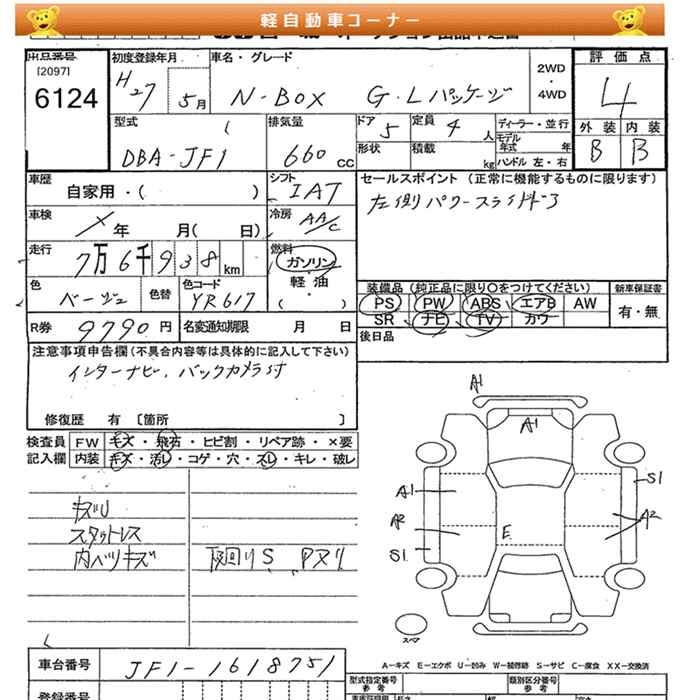 軽自動車コーナー
出品番号
[2097]
6124
初度登録年月
H27 5月
車名・グレード
N-BOX G・Lパッケージ
2WD
・
4WD
評価点
4
外装 内装
B B
型式
DBA-JF1
排気量
660 CC
ドア 5
形状
定員 4 人
積載 kg
ディーラー・並行
モデル年式 年
ハンドル 左・右
車歴
自家用・( )
シフト
IAT
セールスポイント (正常に機能するものに限ります)
左側パワースライドドア
車検
年 月( 日)
冷房
AA/C
走行
7万6千938km
燃料
ガソリン
・
軽油
・
( )
色
ベージュ
色替
色コード
YR617
装備品 (純正品に限り○をつけてください)
PS PW ABS エアB AW
SR ナビ TV カワ
新車保証書
有・無
R券 9790円
名変通知期限 月 日
後日品
注意事項申告欄(不具合内容等は具体的に記入して下さい)
インターナビ、バックカメラ付
修復歴 有 〔箇所 〕
検査員
記入欄
FW キズ・飛石・ヒビ割・リペア跡・×要
内装 キズ・汚レ・コゲ・穴・スレ・キレ・破レ
キズU
スタットレス
内ベツキズ
下回りS
A1
A1
A1
A2
S1
E
S1
A2
スペア
A-キズ E-エクボ U-凹み W-補修跡 S-サビ C-腐食 XX-交換済
車台番号
JF1-1618751
登録番号
型式指定番号
参考
類別区分番号
参考